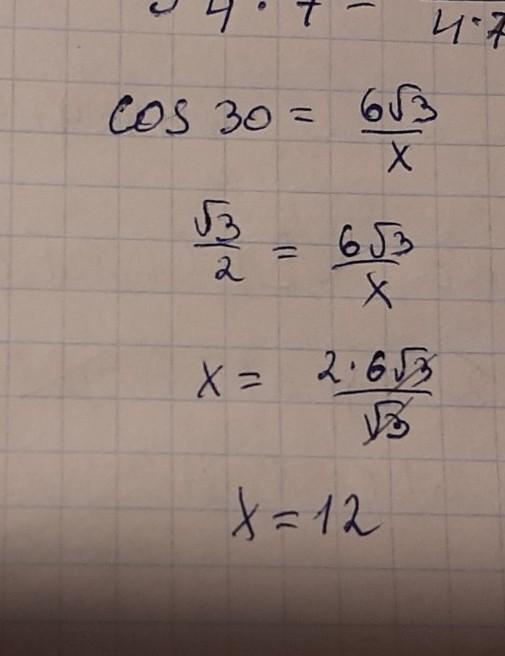 4 · 7 =
4·7
cos 30 = 6√3 / x
√3 / 2 = 6√3 / x
x = 2·6√3 / √3
x = 12